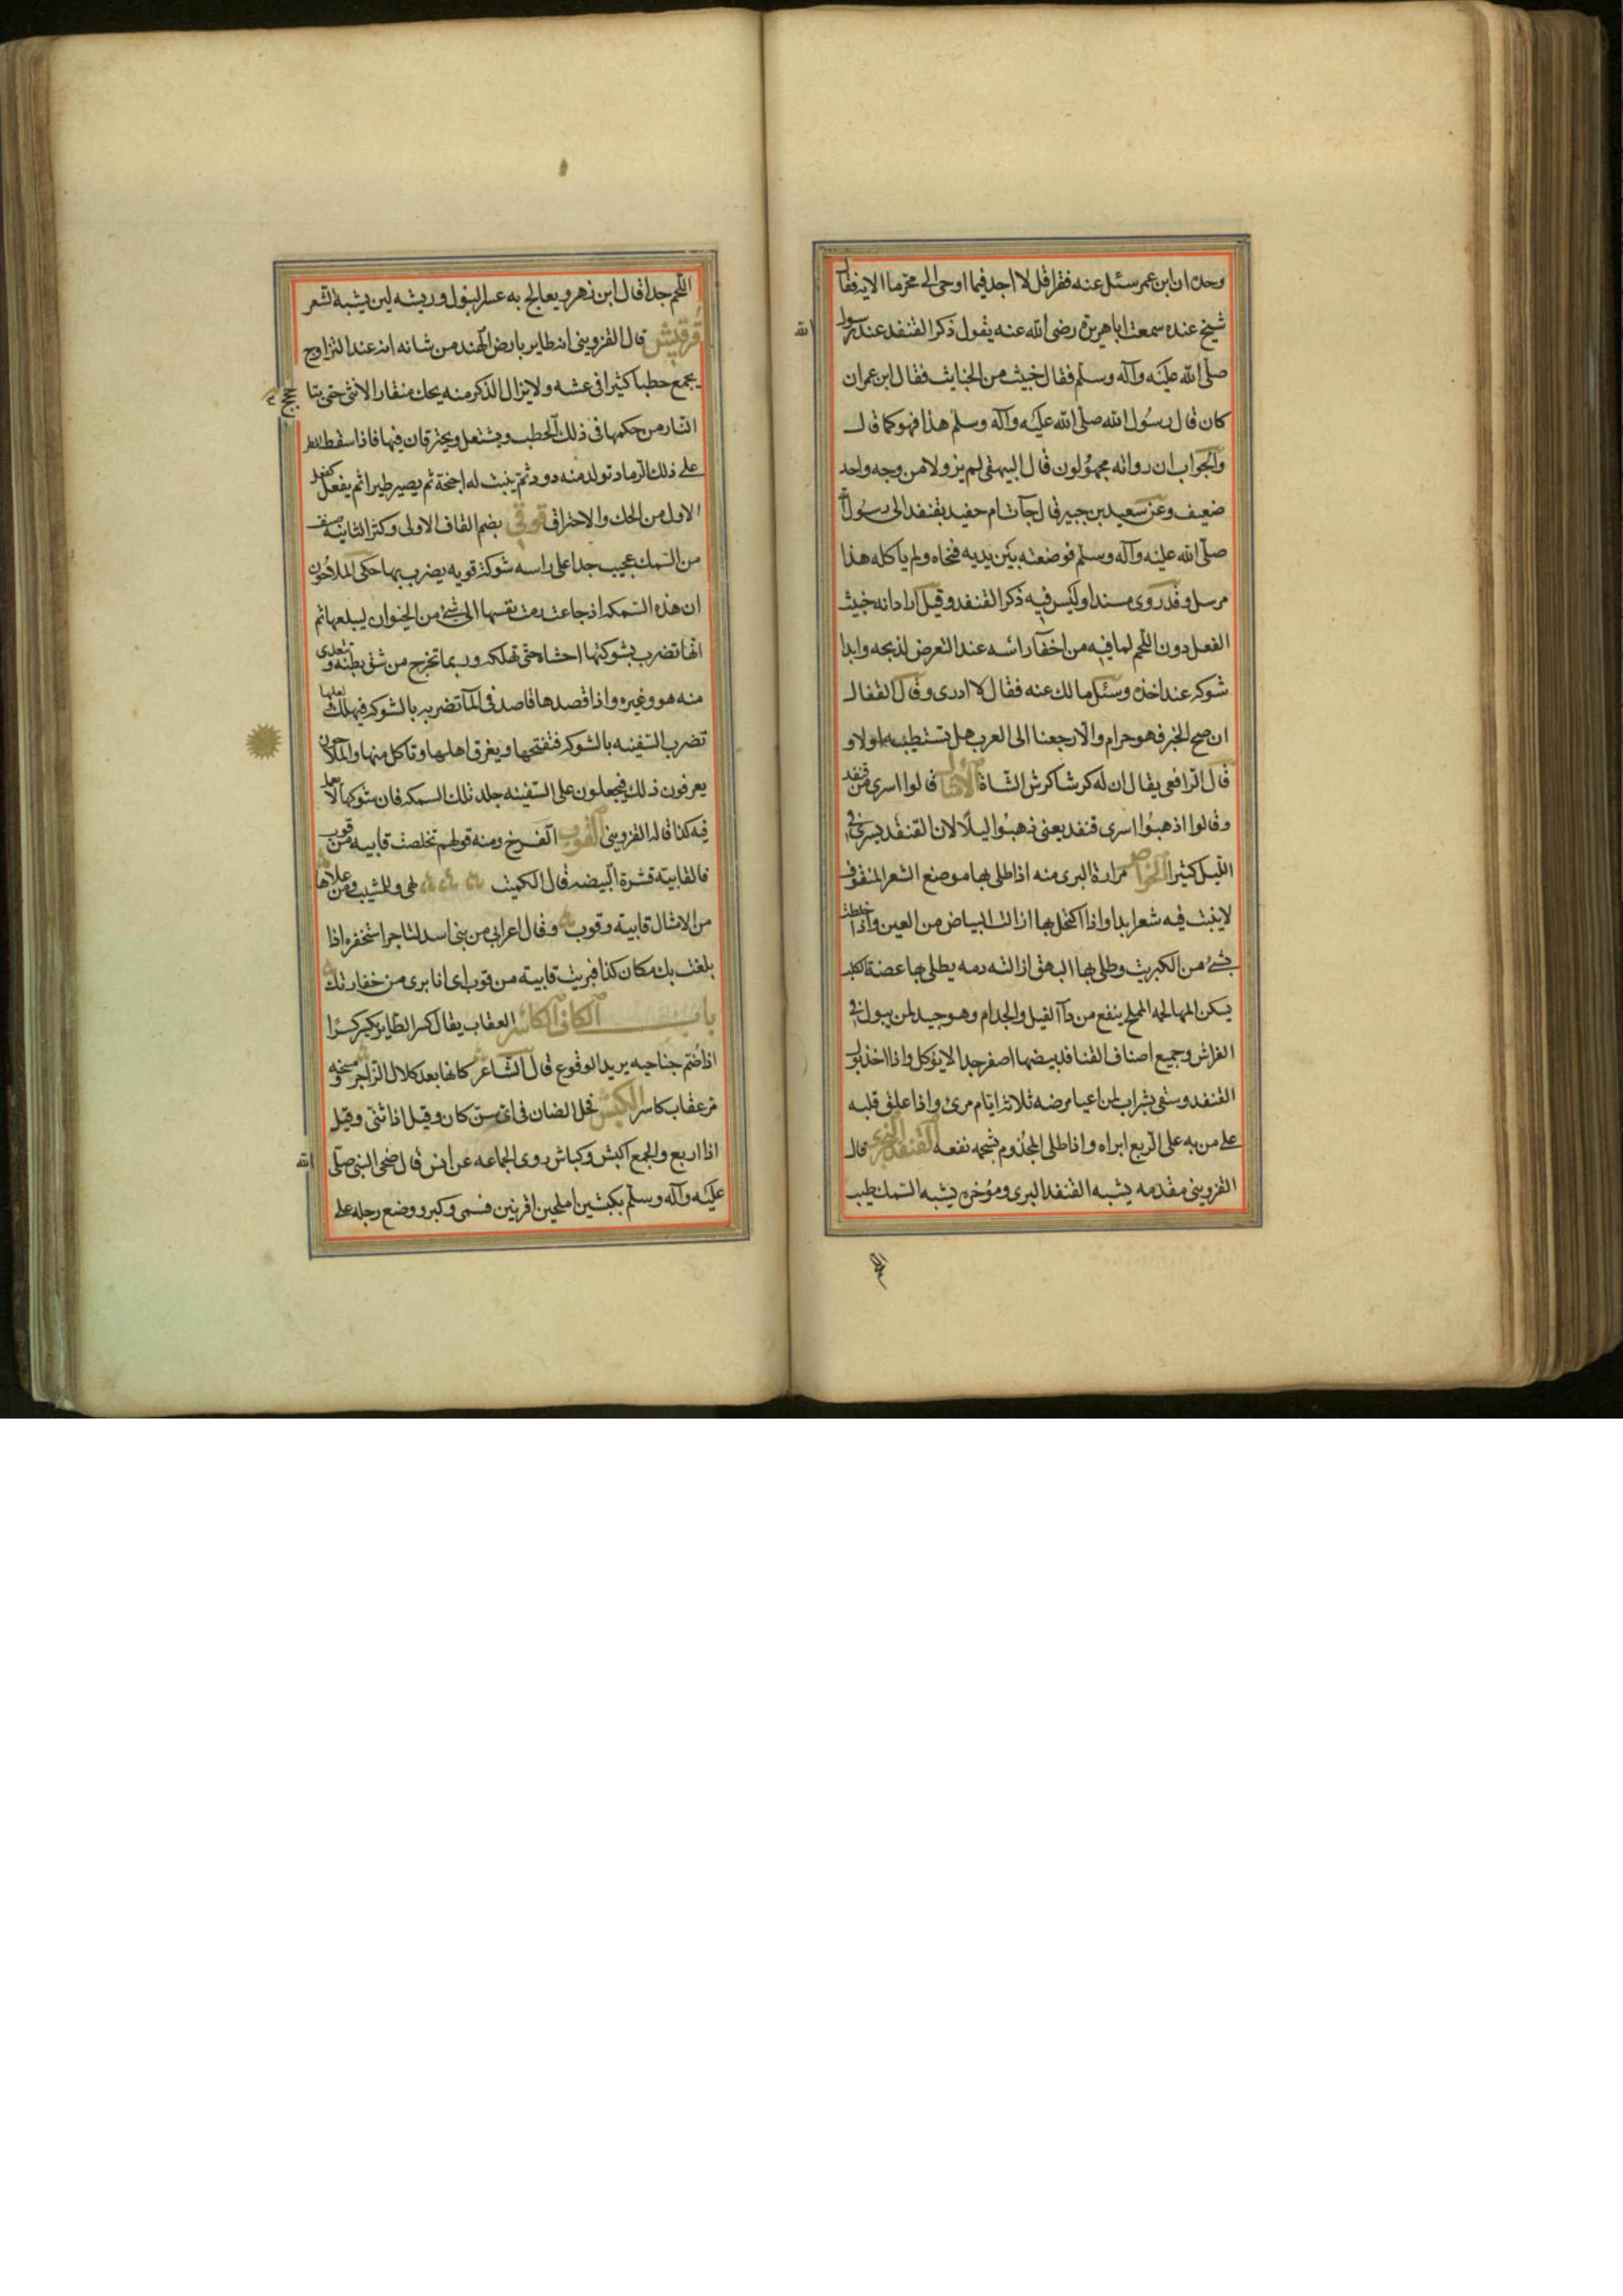 وحده ان ابن عمر سئل عنه فقرا قل لا اجد فيما اوحى الى محرما الاية فقال
شيخ عنده سمعت اباهريرة رضى الله عنه يقول ذكر القنفد عند رسول
الله
صلى الله عليه وآله وسلم فقال خبيث من الخبايث فقال ابن عمر ان
كان قال رسول الله صلى الله عليه وآله وسلم هذا فهو كما قال
والجواب ان رواته مجهولون قال البيهقى لم يرو الا من وجه واحد
ضعيف وعن سعيد بن جبير قال جآت ام حفيد بقنفد الى رسول الله
صلى الله عليه وآله وسلم فوضعته بين يديه فنحاه ولم ياكله هذا
مرسل وقد روى مسندا وليس فيه ذكر القنفد وقيل اراد انه خبيث
الفعل دون اللحم لما فيه من اخفآ راسه عند التعرض لذبحه وابدا
شوكه عند اخذه وسئل مالك عنه فقال لا ادرى وقال القفال
ان صح الخبر فهو حرام والا رجعنا الى العرب هل تستطيبه اولا و
قال الرافعى يقال ان له كرشا كرش الشاة الامثال قالوا اسرى من قنفد
وقالوا اذهبوا اسرى قنفد يعنى ذهبوا ليلا لان القنفد يسرى فى
الليل كثيرا الخواص مرارة البرى منه اذا طلى بها موضع الشعر المنتوف
لا ينبت فيه شعر ابدا واذا اكتحل بها ازالت البياض من العين واذا خلطت
بشئ من الكبريت وطلى بها البهق ازالته دمه يطلى بها عضة الكلب
يسكن المها لحمه المملح ينفع من دآ الفيل والجذام وهو جيد لمن يبول فى
الفراش وجميع اصناف القنافد بيضها اصفر جدا لا يؤكل واذا اخذ بول
القنفد وسقى بشراب لمن اعيا مرضه ثلاثة ايام مرئ واذا علق قلبه
على من به على الربع ابراه واذا طلى المجذوم بشحمه نفعه القنفد البحرى قال
القزوينى مقدمه يشبه القنفد البرى ومؤخره يشبه السمك طيب
اللحم جدا قال ابن زهر ويعالج به عسر البول وريشه لين يشبه الشعر
قرقيش قال القزوينى انه طاير بارض الهند من شانه انه عند التزاوج
يجمع حطبا كثيرا فى عشه ولا يزال الذكر منه يحك منقار الانثى حتى يتاجج
النار من حكهما فى ذلك الحطب ويشتعل ويحترقان فيها فاذا سقط المطر
على ذلك الرماد تولد منه دود ثم ينبت له اجنحة ثم يصير طيرا ثم يفعل كفعل
الاول من الحك والاحتراق قوقى بضم القاف الاولى وكسر الثانية صنف
من السمك عجيب جدا على راسه شوكة قويه يضرب بها حكى الملاحون
ان هذه السمكه اذ جاعت رمت نفسها الى شئ من الحيوان ليبلعها ثم
انها تضرب بشوكتها احشاه حتى تهلكه وربما تخرج من شق بطنه وتتغدى
منه هو وغيره واذا قصدها قاصد فى المآ تضربه بالشوكه فيهلك
تضرب السفينه بالشوكه فتفتحها ويغرق اهلها وتاكل منها والملاحون
يعرفون ذلك فيجعلون على السفينه جلد تلك السمكه فان شوكها لا يعمل
فيه كذا قاله القزوينى القوب الفرخ ومنه قولهم تخلصت قابيه من قوب
فالقابية قشرة البيضه قال الكميت لهن وللمشيب ومن علاها
من الامثال قابية وقوب وقال اعرابى من بنى اسد لتاجر استخفره اذا
بلغت بك مكان كذا فبريت قابية من قوب اى انا برى من خفارتك
باب الكاف الكاسر العقاب يقال كسر الطاير يكسر كسرا
اذا ضم جناحيه يريد الوقوع قال الشاعر كانها بعد كلال الزاجر ومسحه
مر عقاب كاسر الكبش فحل الضان فى اى سن كان وقيل اذا ثنى وقيل
اذا اربع والجمع اكبش وكباش روى الجماعه عن انس قال ضحى النبى صلى
الله
عليه وآله وسلم بكبشين املحين اقرنين فسمى وكبر ووضع رجله على